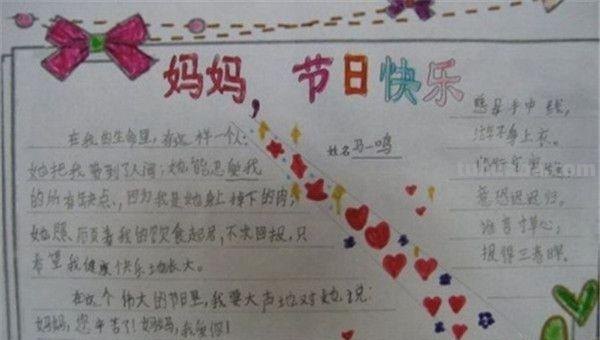 妈妈，节日快乐
姓名 马一鸣
在我的生命里，有这样一个人：
她把我带到了人间；她能忍受我
的所有缺点，因为我是她身上掉下的肉，
她照顾着我的饮食起居，不求回报，只
希望我健康快乐地长大。
在这个伟大的节日里，我要大声地对她说：
妈妈，您辛苦了！妈妈，我爱你！
慈母手中线，
游子身上衣。
临行密密缝，
意恐迟迟归。
谁言寸草心，
报得三春晖。